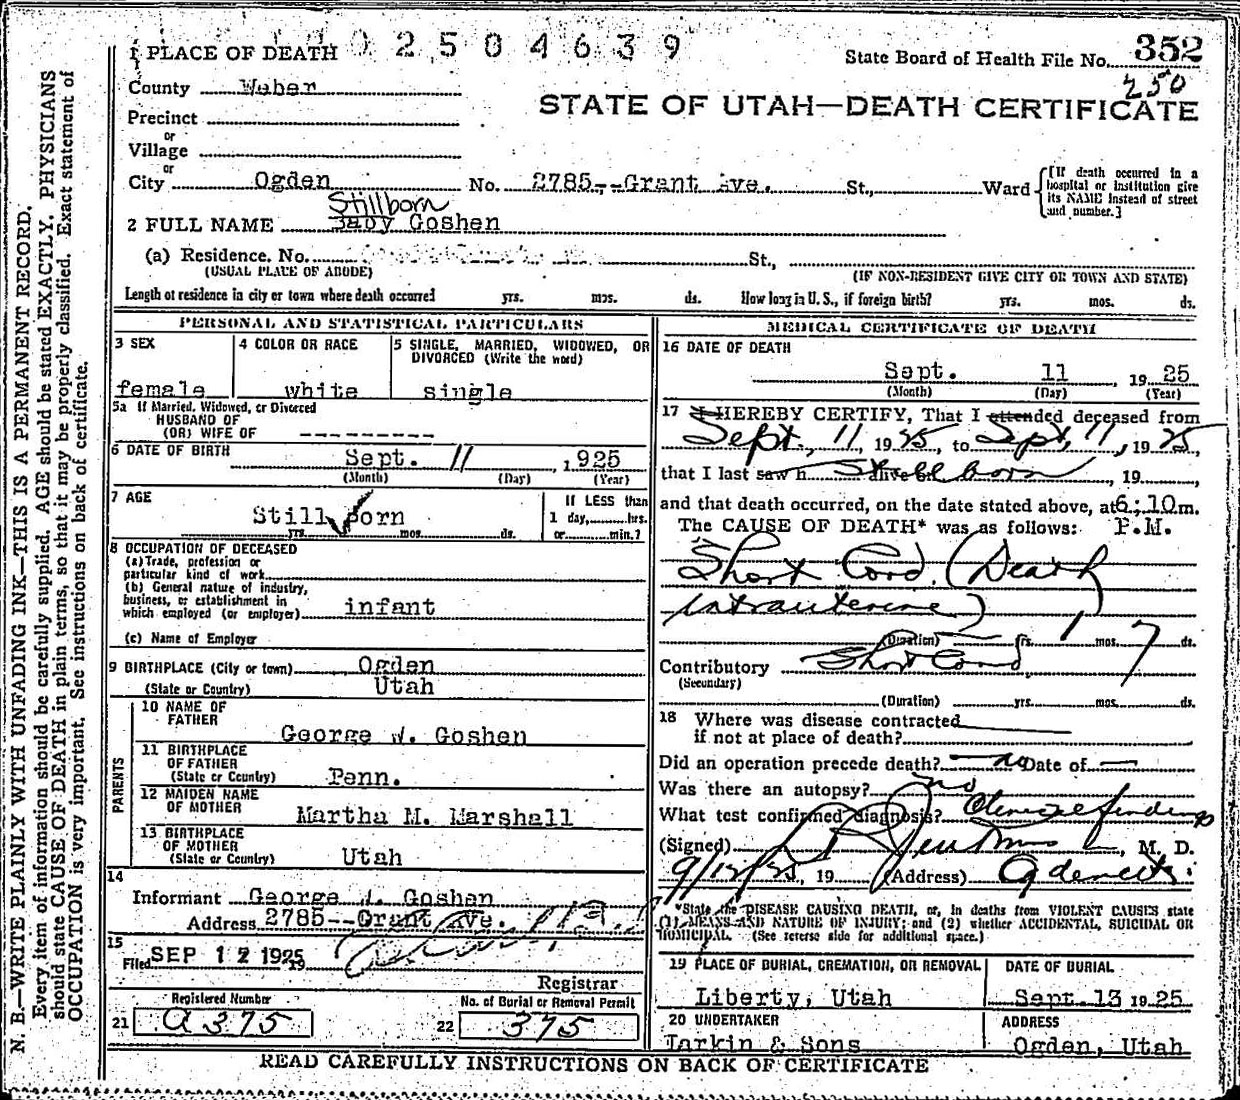 1 PLACE OF DEATH 0 2 5 0 4 6 3 9 State Board of Health File No. 352
250
County Weber
STATE OF UTAH—DEATH CERTIFICATE
Precinct
or
Village
or
City Ogden No. 2785--Grant Ave. St., Ward
[If death occurred in a hospital or institution give its NAME instead of street and number.]
Stillborn
2 FULL NAME Baby Goshen
(a) Residence. No. St.,
(USUAL PLACE OF ABODE) (IF NON-RESIDENT GIVE CITY OR TOWN AND STATE)
Length of residence in city or town where death occurred yrs. mos. ds. How long in U. S., if foreign birth? yrs. mos. ds.
PERSONAL AND STATISTICAL PARTICULARS
3 SEX
female
4 COLOR OR RACE
white
5 SINGLE, MARRIED, WIDOWED, OR
DIVORCED (Write the word)
single
5a If Married, Widowed, or Divorced
HUSBAND OF
(OR) WIFE OF
6 DATE OF BIRTH Sept. 11, 1925
(Month) (Day) (Year)
7 AGE
Still born
yrs. mos. ds.
If LESS than
1 day, hrs.
or min.?
8 OCCUPATION OF DECEASED
(a) Trade, profession or
particular kind of work
(b) General nature of industry,
business, or establishment in
which employed (or employer) infant
(c) Name of Employer
9 BIRTHPLACE (City or town) Ogden
(State or Country) Utah
PARENTS
10 NAME OF
FATHER
George W. Goshen
11 BIRTHPLACE
OF FATHER
(State or Country) Penn.
12 MAIDEN NAME
OF MOTHER
Martha M. Marshall
13 BIRTHPLACE
OF MOTHER
(State or Country) Utah
14
Informant George W. Goshen
Address 2785--Grant Ave.
15
Filed SEP 12 1925 19
Registrar
Registered Number
21 a 375
No. of Burial or Removal Permit
22 375
MEDICAL CERTIFICATE OF DEATH
16 DATE OF DEATH
Sept. 11, 1925
(Month) (Day) (Year)
17 I HEREBY CERTIFY, That I attended deceased from
Sept., 11 1925, to Sept, 11, 1925,
that I last saw h alive on Stillborn, 19
and that death occurred, on the date stated above, at 6;10 m.
The CAUSE OF DEATH* was as follows: P.M.
Short Cord. (Death
intrauterine)
(Duration) yrs. 1 mos. 7 ds.
Contributory Short Cord
(Secondary)
(Duration) yrs. mos. ds.
18 Where was disease contracted
if not at place of death?
Did an operation precede death? no Date of
Was there an autopsy? no
What test confirmed diagnosis? Clinical findings
(Signed) M. D.
9/12/25, 19 (Address) Ogden Ut.
*State the DISEASE CAUSING DEATH, or, in deaths from VIOLENT CAUSES state
(1) MEANS AND NATURE OF INJURY; and (2) whether ACCIDENTAL, SUICIDAL OR
HOMICIDAL. (See reverse side for additional space.)
19 PLACE OF BURIAL, CREMATION, OR REMOVAL
Liberty, Utah
DATE OF BURIAL
Sept. 13 1925
20 UNDERTAKER
Larkin & Sons
ADDRESS
Ogden, Utah
READ CAREFULLY INSTRUCTIONS ON BACK OF CERTIFICATE
N. B.—WRITE PLAINLY WITH UNFADING INK—THIS IS A PERMANENT RECORD.
Every item of information should be carefully supplied. AGE should be stated EXACTLY. PHYSICIANS
should state CAUSE OF DEATH in plain terms, so that it may be properly classified. Exact statement of
OCCUPATION is very important. See instructions on back of certificate.